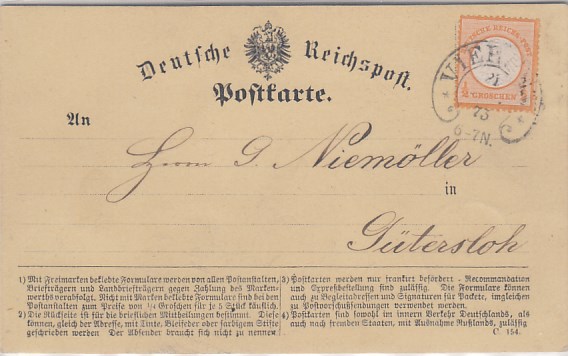 Deutsche Reichspost.
Postkarte.
DEUTSCHE REICHS-POST
GROSCHEN
VIER
21
73
6-7N.
An
Herrn G. Niemöller
in
Gütersloh
1) Mit Freimarken beklebte Formulare werden von allen Postanstalten,
Briefträgern und Landbriefträgern gegen Zahlung des Marken-
werths verabfolgt. Nicht mit Marken beklebte Formulare sind bei den
Postanstalten zum Preise von ¼ Groschen für je 5 Stück käuflich.
2) Die Rückseite ist für die brieflichen Mittheilungen bestimmt. Diese
können, gleich der Adresse, mit Tinte, Bleifeder oder farbigem Stifte
geschrieben werden. Der Absender braucht sich nicht zu nennen.
3) Postkarten werden nur frankirt befördert. Recommandation
und Expreßbestellung sind zulässig. Die Formulare können
auch zu Begleitadressen und Signaturen für Packete, imgleichen
zu Postvorschußsendungen verwendet werden.
4) Postkarten sind sowohl im innern Verkehr Deutschlands, als
auch nach fremden Staaten, mit Ausnahme Rußlands, zulässig
C. 154.